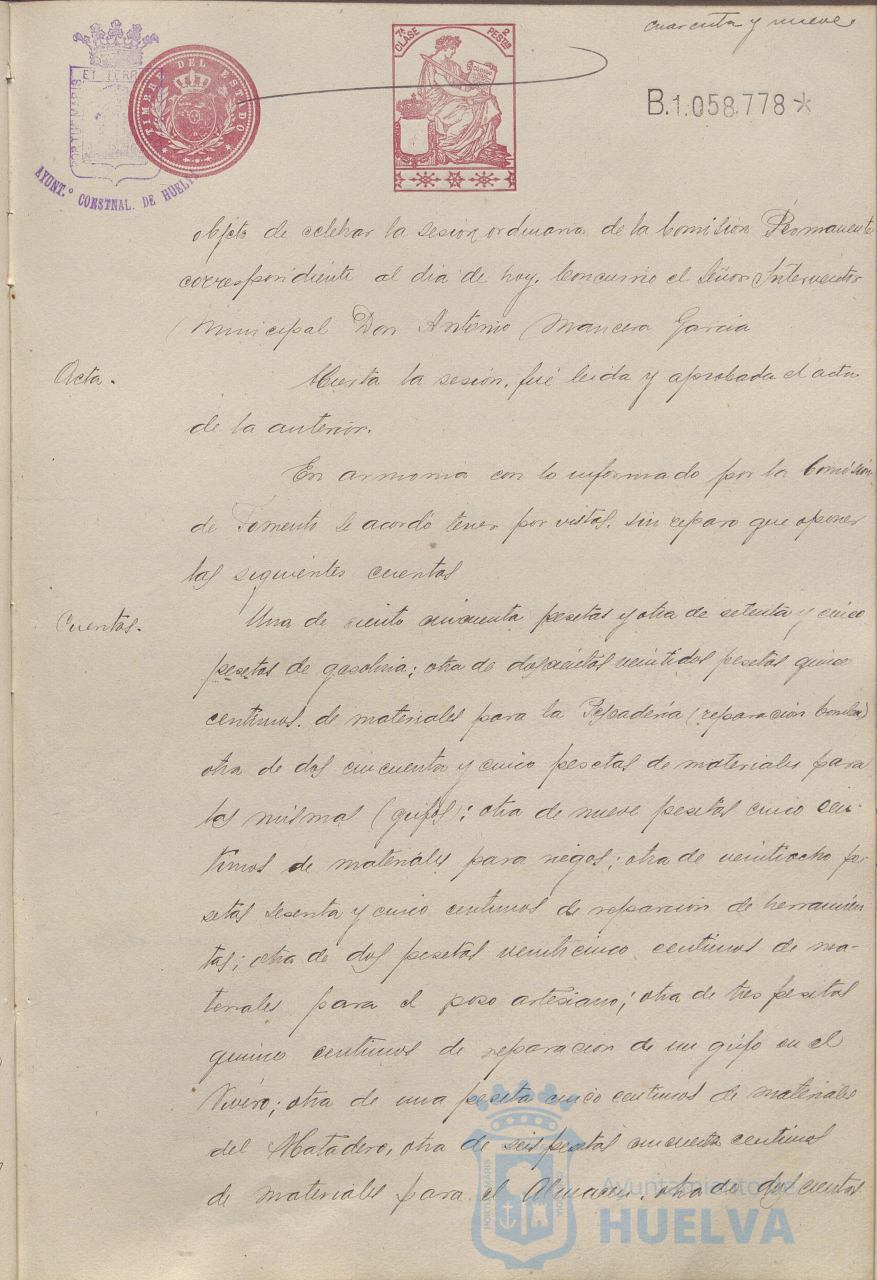 cuarenta y nueve
7ª CLASE
2 PESTAS
TIMBRE DEL ESTADO
B.1.058.778*
AYUNT.º CONSTNAL. DE HUELVA
objeto de celebrar la sesion ordinaria de la Comision Permanente
correspondiente al dia de hoy. Concurrio el Señor Interventor
Municipal Don Antonio Mancera Garcia
Acta.
Abierta la sesión, fué leida y aprobada el acta
de la anterior.
En armonia con lo informado por la Comisión
de Fomento se acordó tener por vistas, sin reparo que oponer
las siguientes cuentas
Cuentas.
Una de ciento cincuenta pesetas y otra de setenta y cinco
pesetas de gasolina; otra de doscientas veintidos pesetas quince
centimos. de materiales para la Pescadería (reparación bomba)
otra de dos cincuenta y cinco pesetas de materiales para
las mismas (grifos); otra de nueve pesetas cinco cen-
timos de materiales para riegos; otra de veintiocho pe-
setas sesenta y cinco centimos de reparación de herramien
tas; otra de dos pesetas veinticinco centimos de ma-
teriales para el pozo artesiano; otra de tres pesetas
quince centimos de reparacion de un grifo en el
Vivero; otra de una peseta cinco centimos de materiales
del Matadero, otra de seis pesetas cincuenta centimos
de materiales para el Almacen, otra de doscientas
Ayuntamiento de
HUELVA